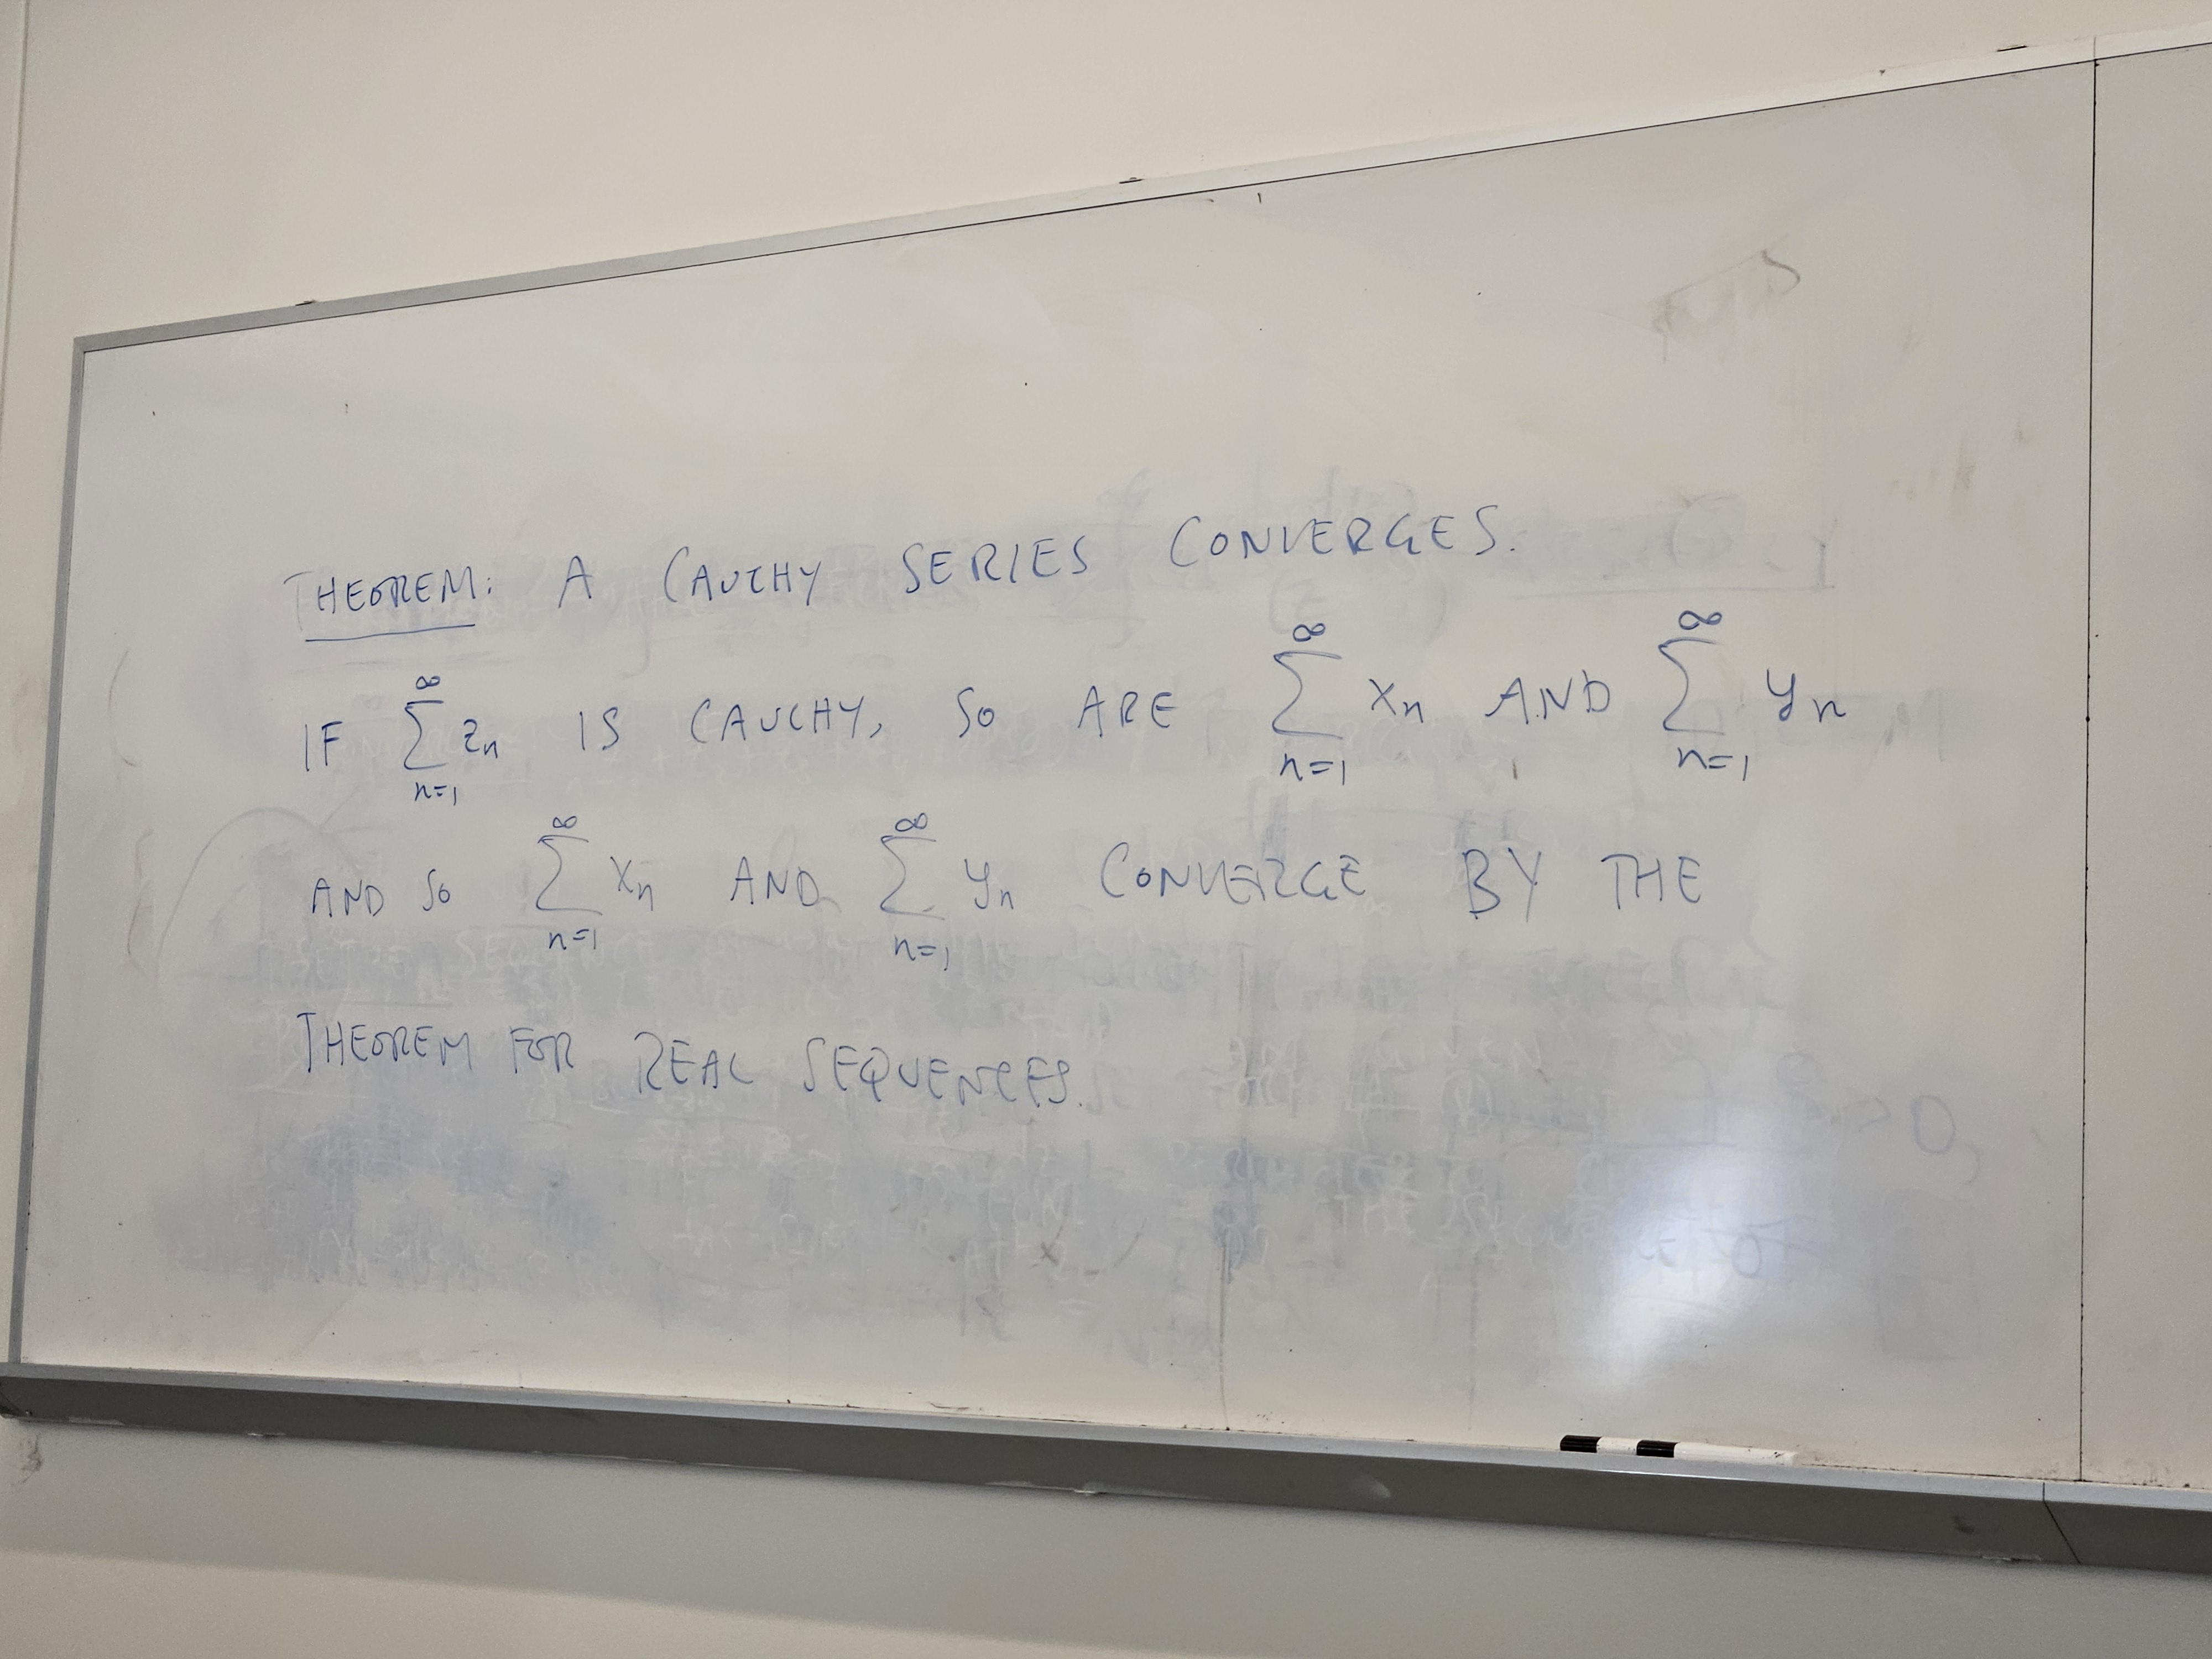 THEOREM: A CAUCHY SERIES CONVERGES.
IF ∞ ∑ n=1 zn IS CAUCHY, SO ARE ∞ ∑ n=1 xn AND ∞ ∑ n=1 yn
AND SO ∞ ∑ n=1 xn AND ∞ ∑ n=1 yn CONVERGE BY THE
THEOREM FOR REAL SEQUENCES.